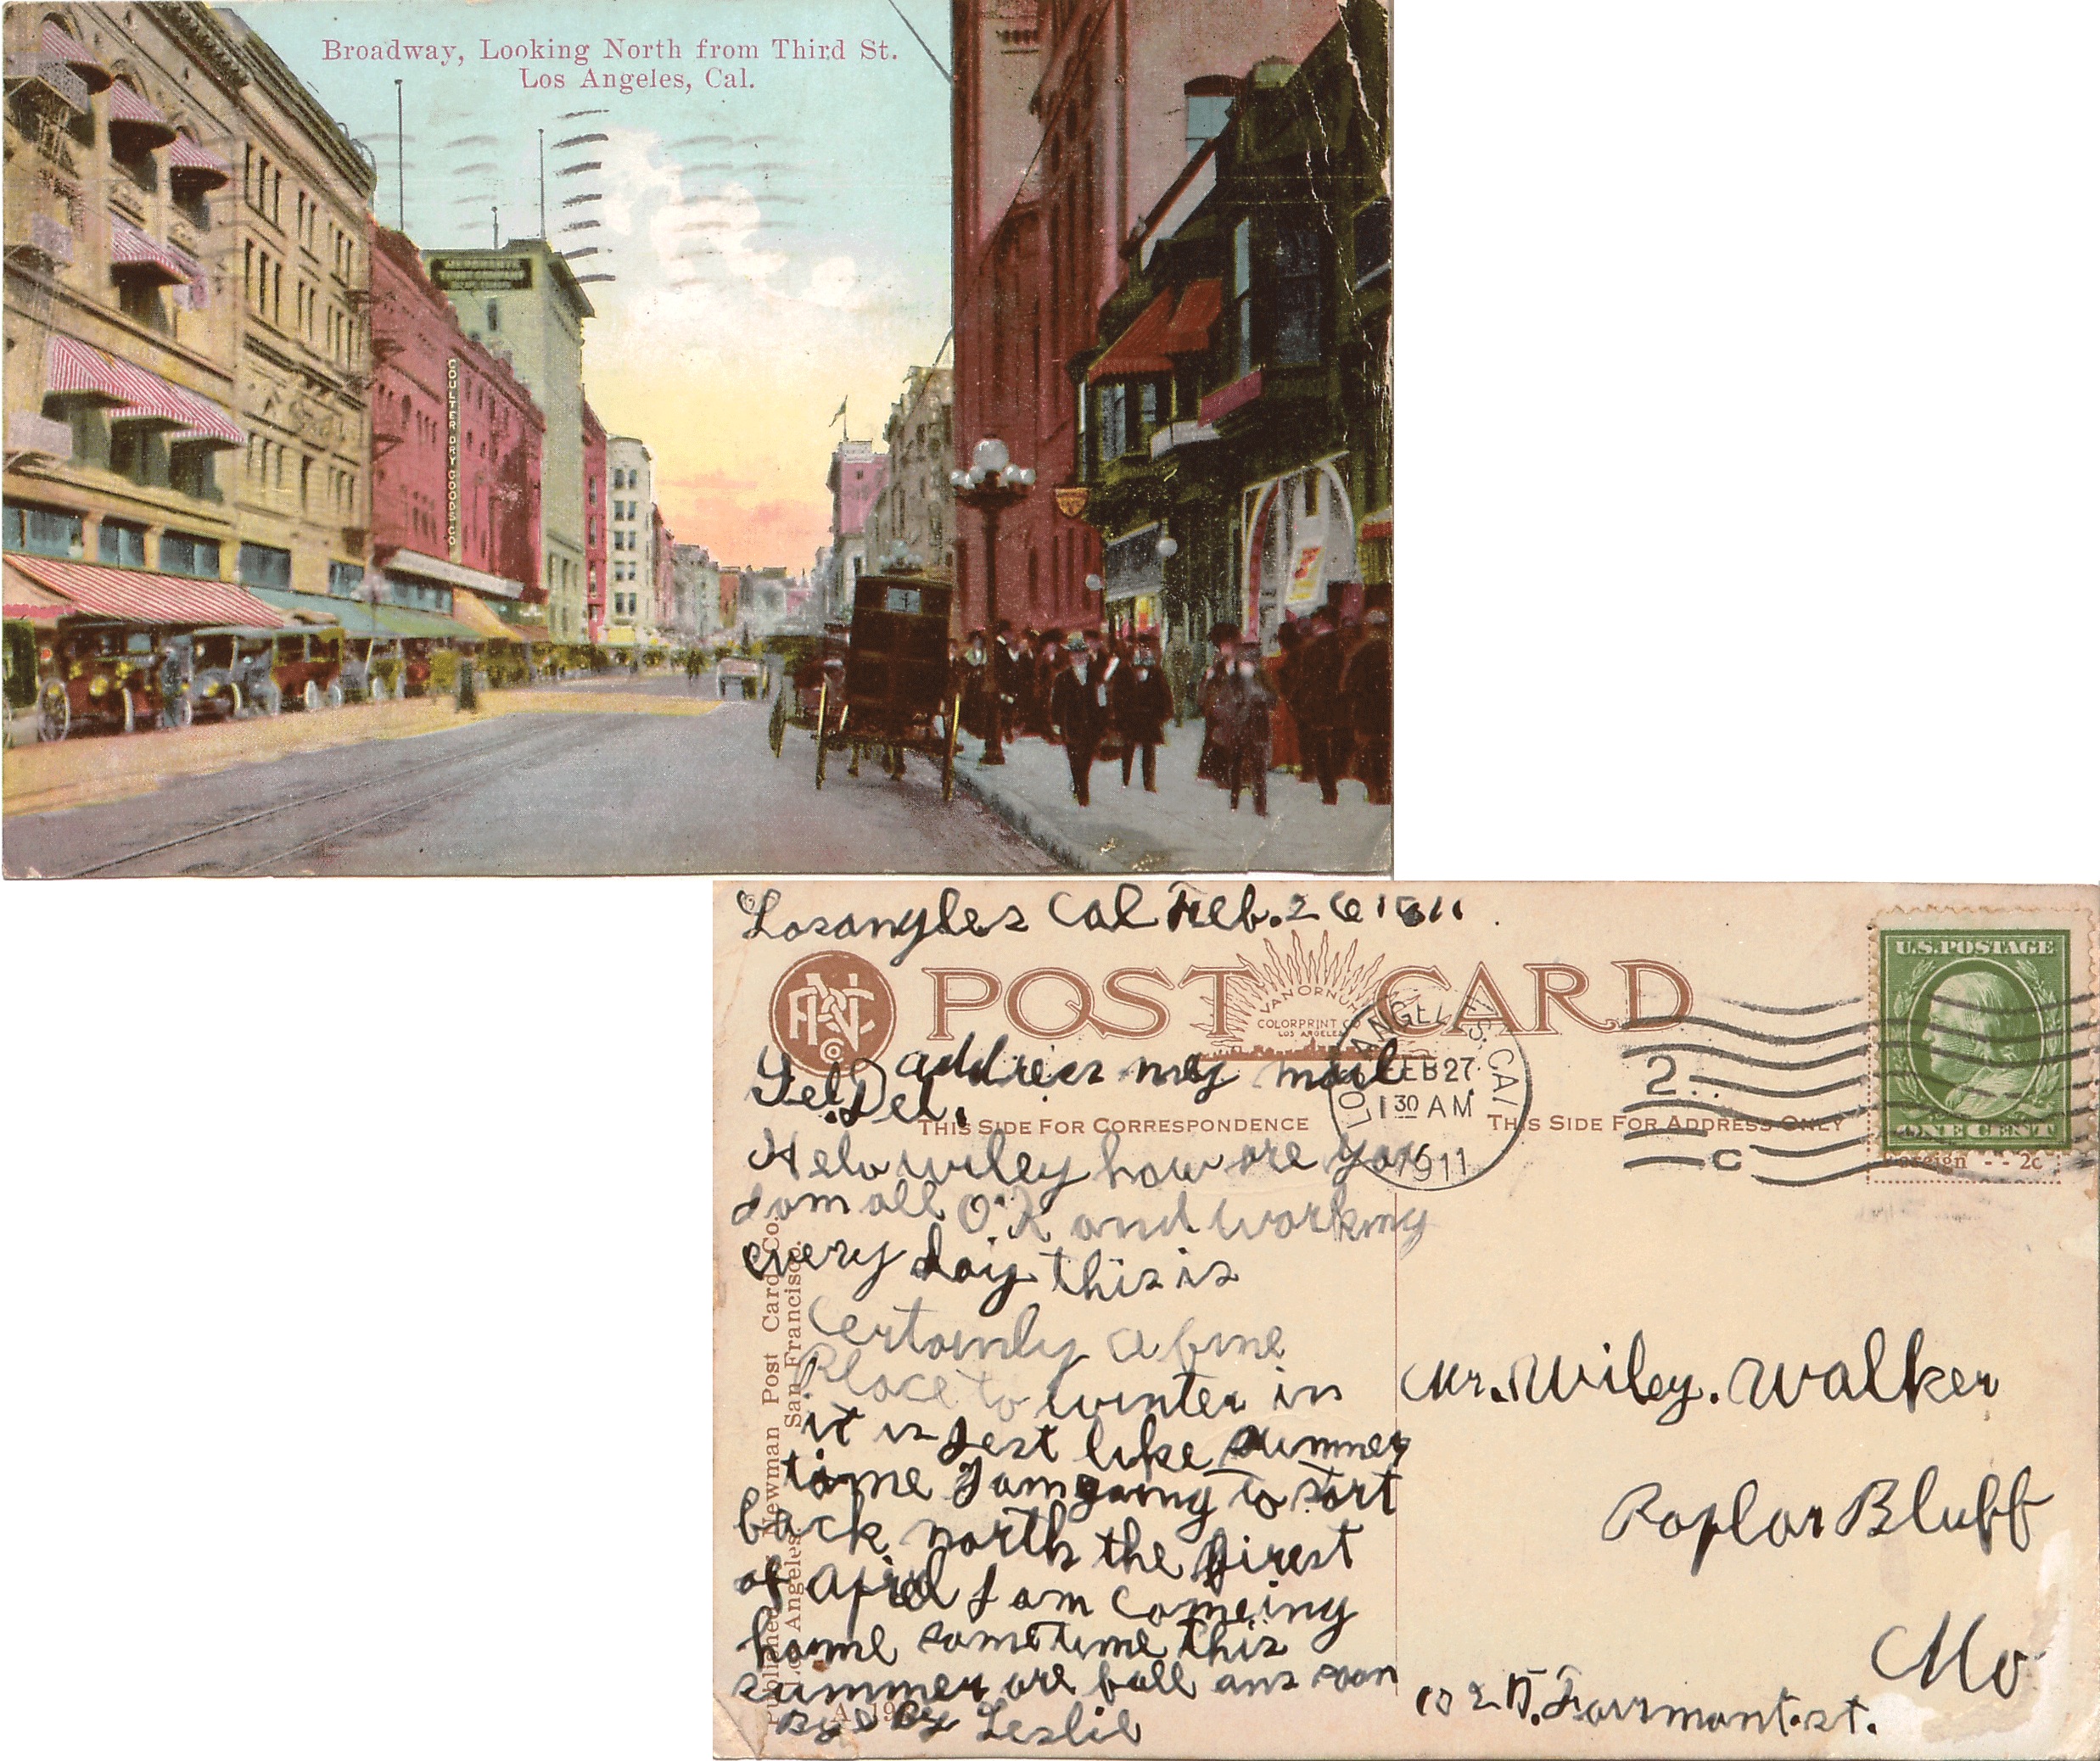 Broadway, Looking North from Third St.
Los Angeles, Cal.
COULTER DRY GOODS CO.
Losangles Cal Feb. 26 1911
POST CARD
VAN ORNUM
COLORPRINT CO
LOS ANGELES
address my mail
Gel Del.
LOS ANGELES, CAL
FEB 27
1 30 AM
1911
2
C
U.S. POSTAGE
ONE CENT
Foreign - - 2c
THIS SIDE FOR CORRESPONDENCE
THIS SIDE FOR ADDRESS ONLY
Helo wiley how are you
I am all O.K and working
every day this is
certainly a fine
Place to winter in
it is Jest like summer
time I am going to start
back north the first
of April I am comeing
home sometime this
summer are fall ans soon
Bye By Leslie
Mr. Wiley. Walker
Poplar Bluff
Mo
102 N. Fairmont. st.
Published Newman Post Card Co.
Los Angeles San Francisco.